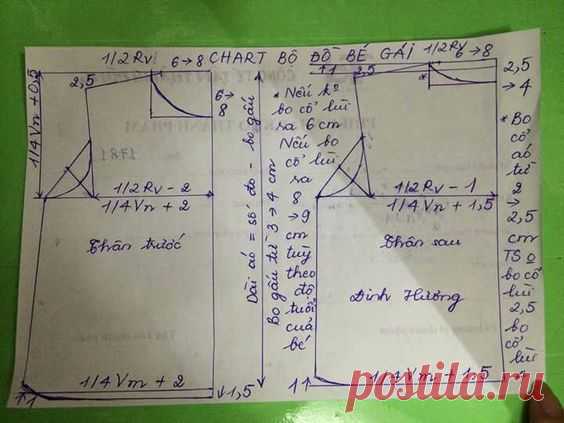 CHART BỘ ĐỒ BÉ GÁI
1/2 Rv
6→8
2,5
1/4 Vn + 0,5
6→
8
1/2 Rv - 2
1/4 Vn + 2
Thân trước
1/4 Vm + 2
1
1,5
Dài áo = số đo - bo gấu
Bo gấu từ 3 → 4 cm
* Nếu k²
bo cổ lùi
ra 6 cm
Nếu bo
cổ lùi
ra
8
→ 9
cm
tùy
theo
độ
tuổi
của
bé
1/2 Rv
6→8
1
2,5
2,5
→ 4
1/2 Rv - 1
1/4 Vn + 1,5
Thân sau
Đinh Hương
1/4 Vm + 1,5
1
* Bo
cổ
áo
từ
2
→
2,5
cm
TS
bo cổ
lùi
2,5
bo
cổ
lùi
4
1781
postila.ru